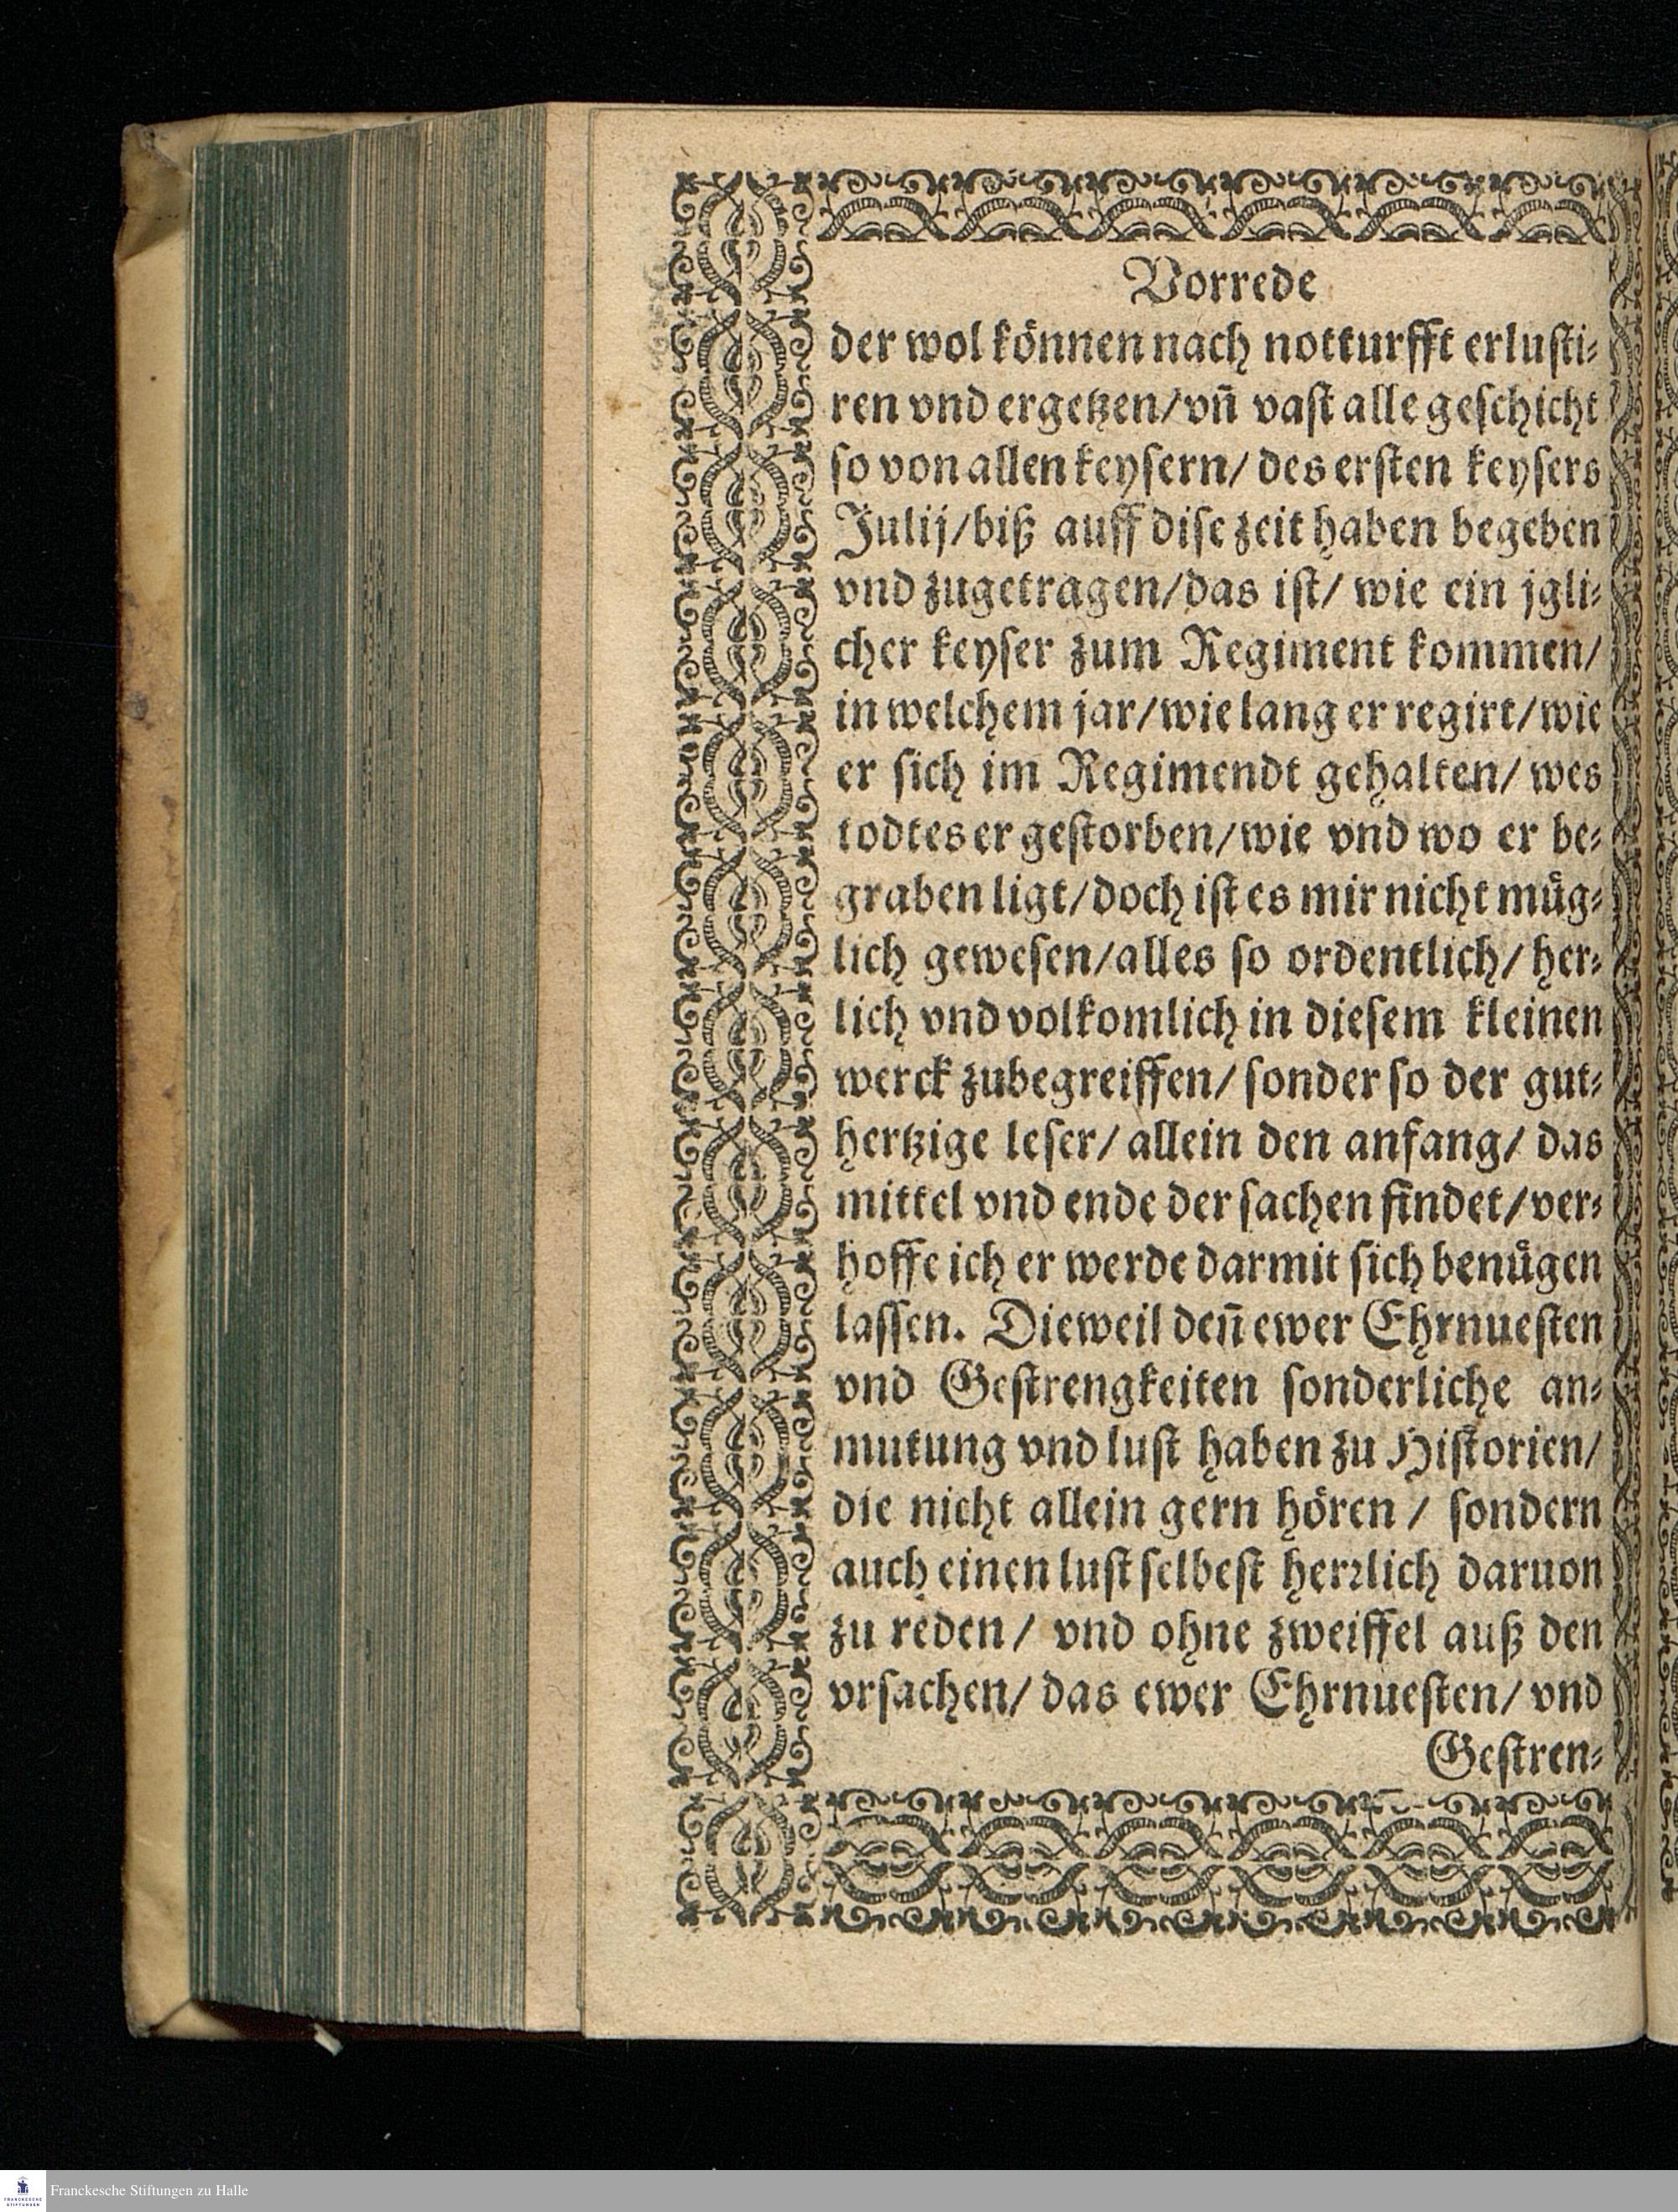 Vorrede
der wol können nach notturfft erlusti⸗
ren vnd ergetzen/vñ vast alle geschicht
so von allen keysern/ des ersten keysers
Julij/biß auff dise zeit haben begeben
vnd zugetragen/das ist/ wie ein jgli⸗
cher keyser zum Regiment kommen/
in welchem jar/wie lang er regirt/wie
er sich im Regimendt gehalten/ wes
todtes er gestorben/wie vnd wo er be⸗
graben ligt/doch ist es mir nicht müg⸗
lich gewesen/alles so ordentlich/ her⸗
lich vnd volkomlich in diesem kleinen
werck zubegreiffen/ sonder so der gut⸗
hertzige leser/ allein den anfang/ das
mittel vnd ende der sachen findet/ver⸗
hoffe ich er werde darmit sich benügen
lassen. Dieweil deñ ewer Ehrnuesten
vnd Gestrengkeiten sonderliche an⸗
mutung vnd lust haben zu Historien/
die nicht allein gern hören / sondern
auch einen lust selbest herꝛlich daruon
zu reden/ vnd ohne zweiffel auß den
vrsachen/ das ewer Ehrnuesten/ vnd
Gestren⸗
Franckesche Stiftungen zu Halle
FRANCKESCHE
STIFTUNGEN